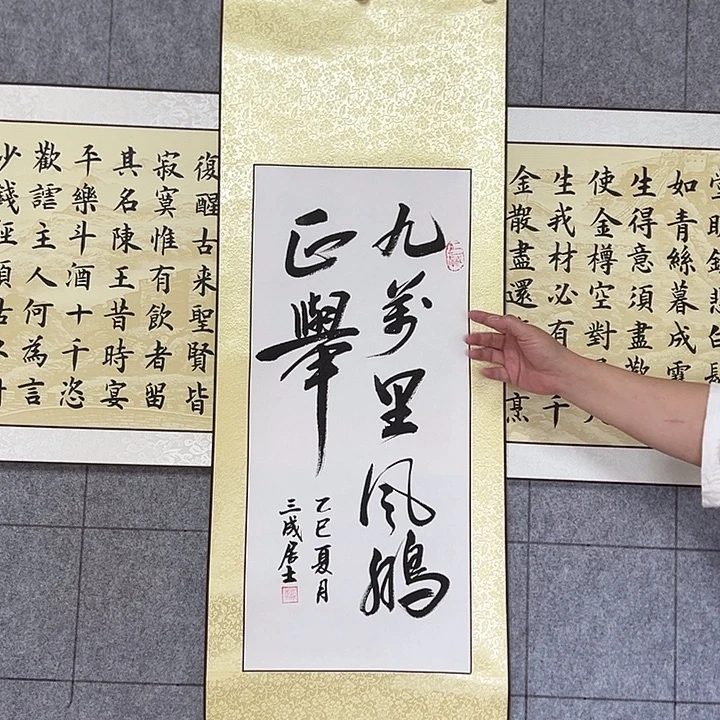 如青絲暮成雪
生得意須盡歡
使金樽空對
生我材必有 千
金散盡還 烹
九萬里風鵬
正舉
乙巳夏月
三成居士
復醒古来聖賢皆
寂寞惟有飲者留
其名陳王昔時宴
平樂斗酒十千恣
歡謔主人何為言
少錢徑須沽